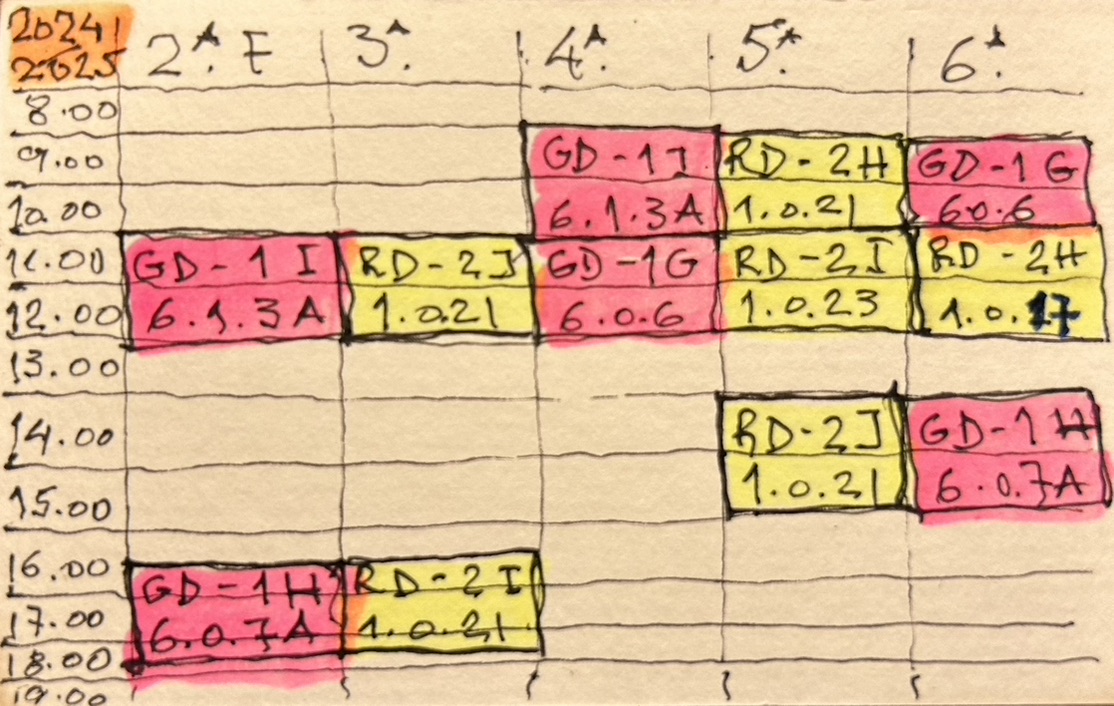 2024/ 2025 2ª. F 3ª. 4ª. 5ª. 6ª.
8.00
9.00 GD-1J RD-2H GD-1G
10.00 6.1.3A 1.0.21 6.0.6
11.00 GD-1I RD-2J GD-1G RD-2I RD-2H
12.00 6.1.3A 1.0.21 6.0.6 1.0.23 1.0.17
13.00
14.00 RD-2J GD-1H
15.00 1.0.21 6.0.7A
16.00 GD-1H RD-2I
17.00 6.0.7A 1.0.21
18.00
19.00